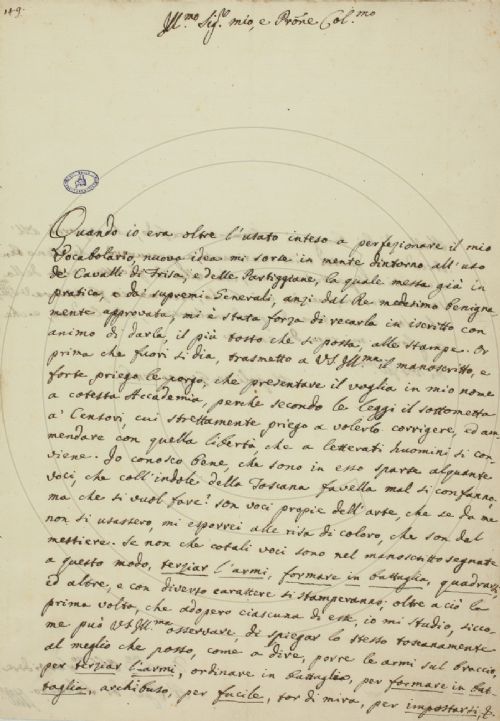 149.
Ill.mo Sig.r mio, e Prōne Col.mo
Quando io era oltre l'usato inteso a perfezionare il mio
Vocabolario, nuova idea mi sorse in mente dintorno all'uso
de' Cavalli di Frisa, e delle Partiggiane, la quale messa già in
pratica, e dai supremi Generali, anzi dal Re medesimo benigna
mente approvata, mi è stata forza di recarla in iscritto con
animo di darla, il più tosto che si possa, alle stampe. Or
prima che fuori si dia, trasmetto a VS Ill.ma il manoscritto, e
forte priego le porgo, che presentare il voglia in mio nome
a cotesta Accademia, perchè secondo le leggi il sottometta
a' Censori, cui strettamente priego a volerlo corrigere, ed am
mendare con quella libertà, che a letterati huomini si con
viene. Io conosco bene, che sono in esso sparte alquante
voci, che coll'indole della Toscana favella mal si confanno,
ma che si vuol fare? son voci propie dell'arte, che se da me
non si usassero, mi esporrei alle risa di coloro, che son del
mestiere. Se non che cotali voci sono nel manoscritto segnate
a questo modo, terziar l'armi, formare in battaglia, quadrarsi,
ed altre, e con diverso carattere si stamperanno; oltre a ciò la
prima volta, che adopero ciascuna di esse, io mi studio, sicco
me può VS Ill.ma osservare, di spiegar lo stesso toscanamente
al meglio che posso, come a dire, porre le armi sul braccio,
per terziar l'armi, ordinare in battaglia, per formare in bat
taglia, archibuso, per fucile, tor di mira, per impostarsi, &.